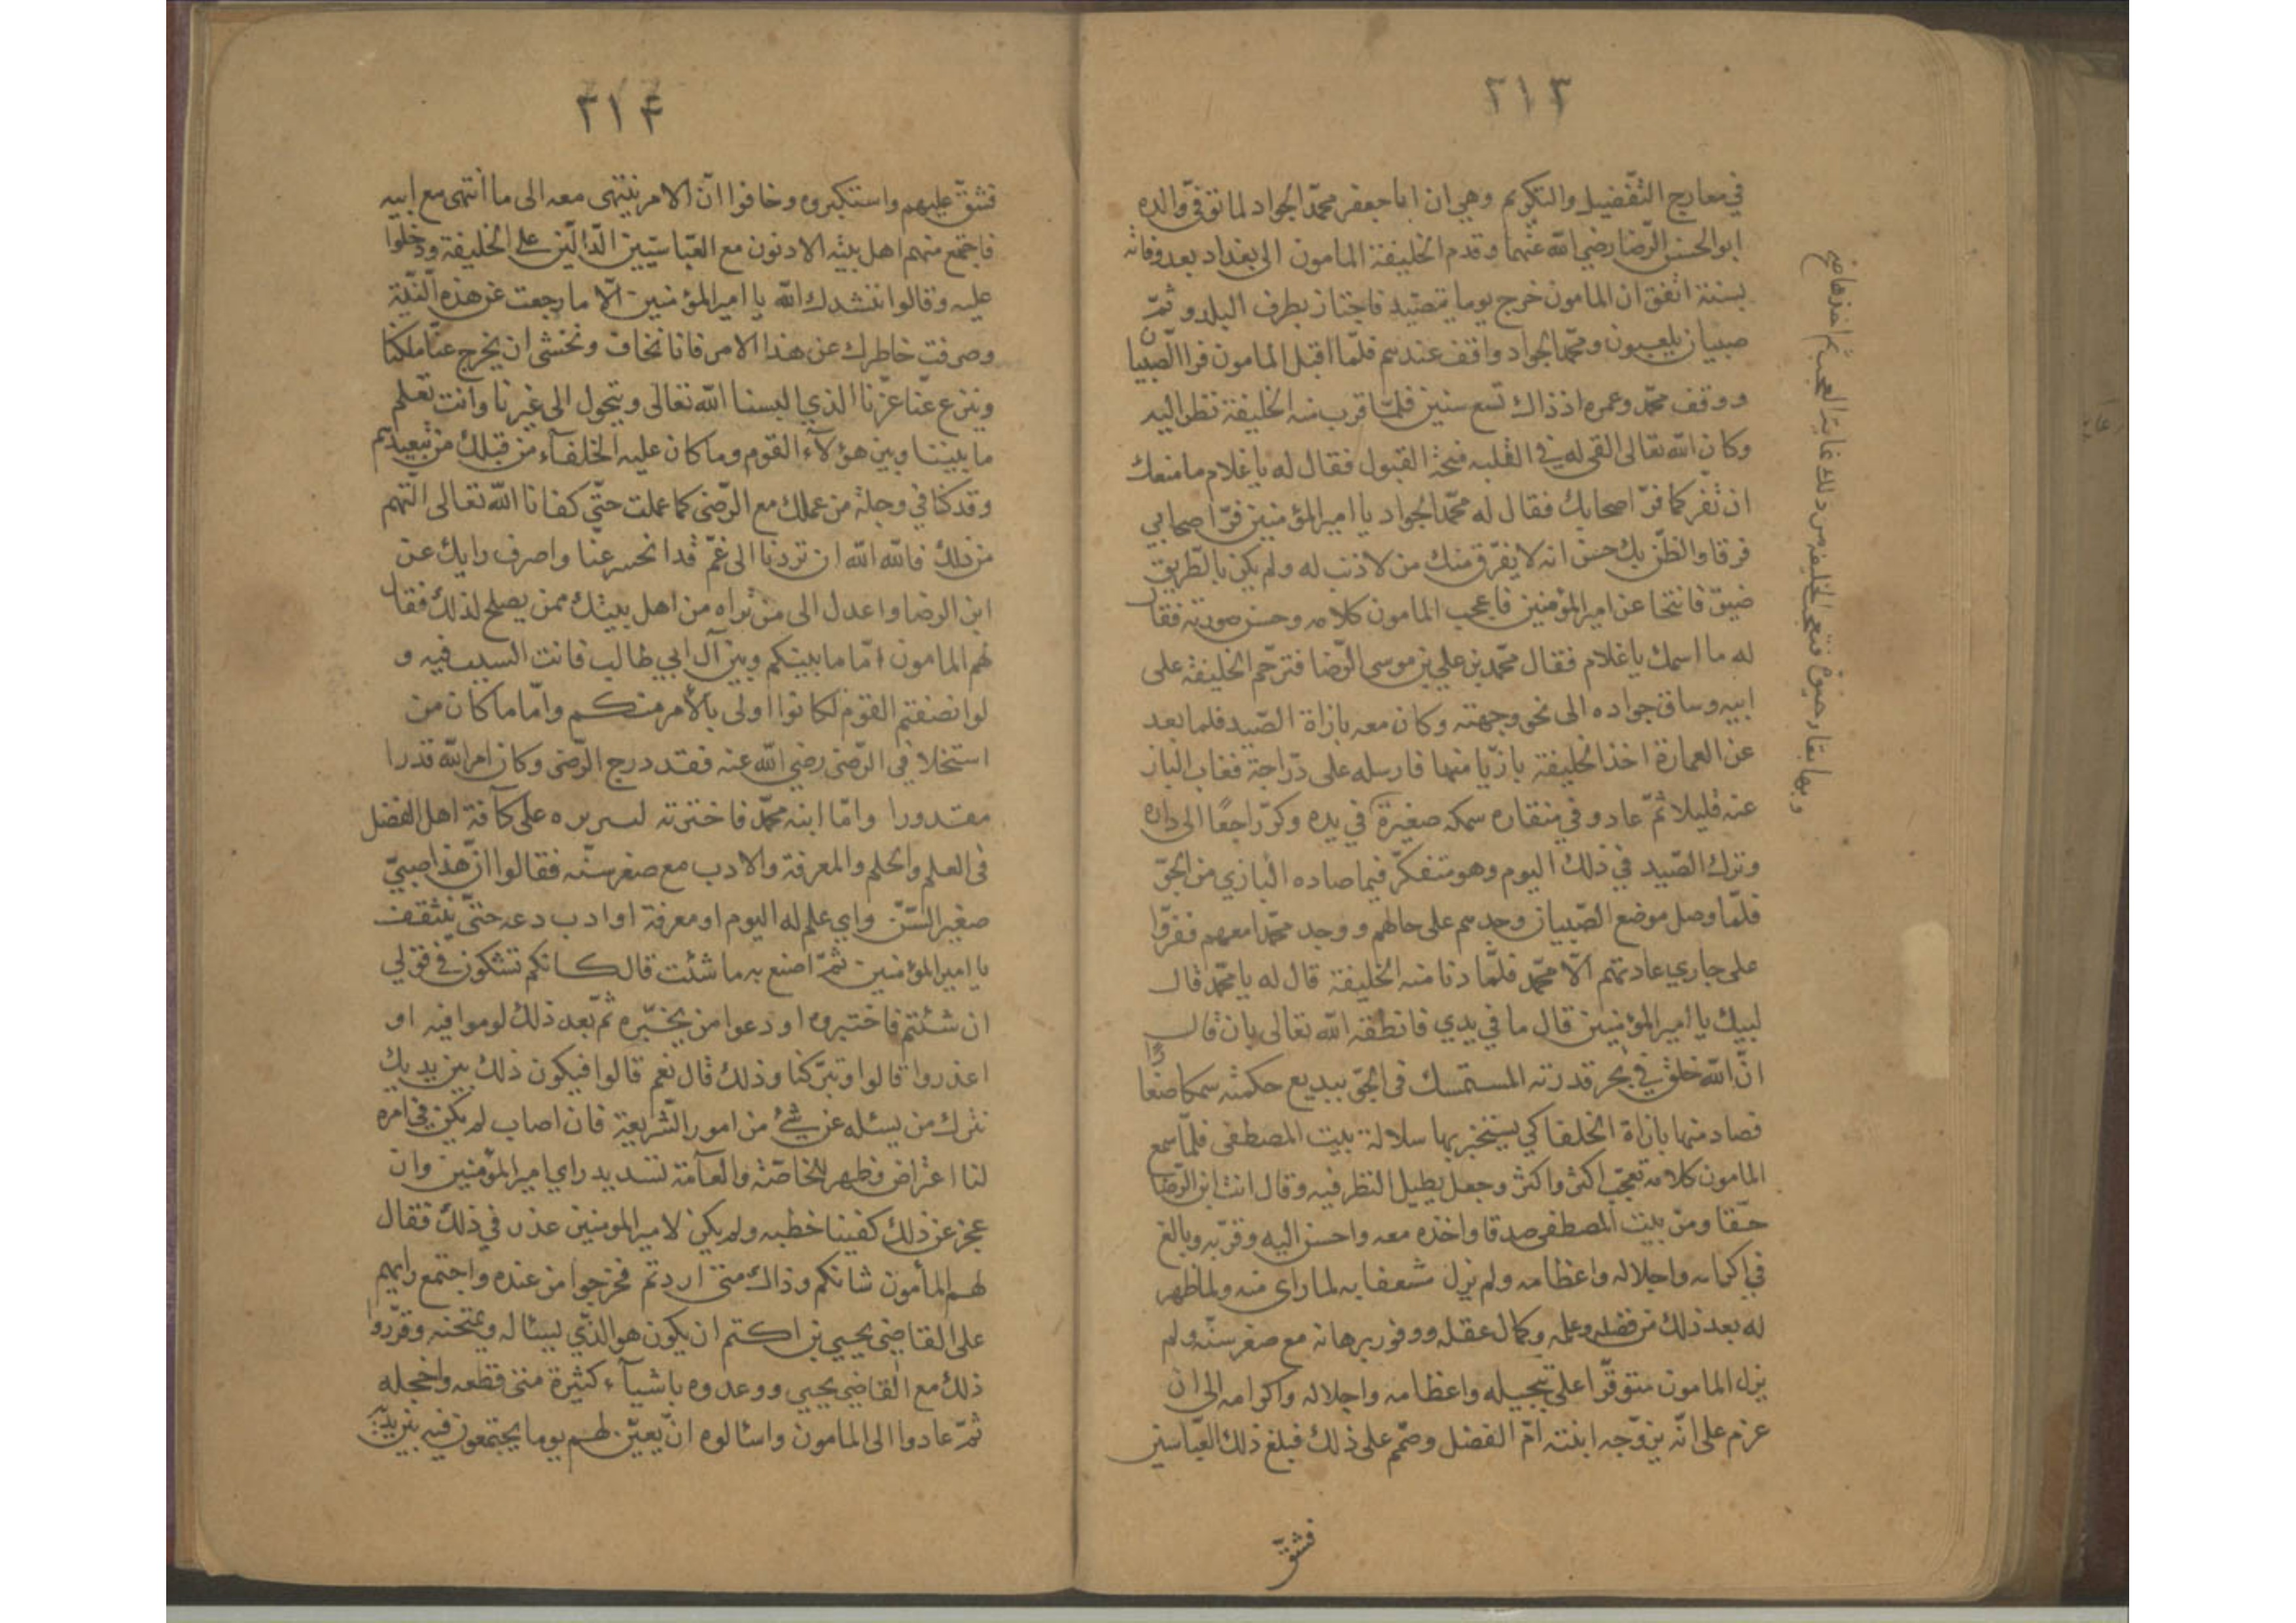 ٢١٣
في معارج التّفضيل والتكريم وهي ان ابا جعفر محمّد الجواد لما توفّي والده
ابو الحسن الرّضا رضي الله عنهما وقدم الخليفة المامون الى بغداد بعد وفاته
بسنة اتفق ان المامون خرج يوما يتصيّد فاجتاز بطرف البلد وثمّ
صبيان يلعبون ومحمّد الجواد واقف عندهم فلمّا اقبل المامون فرا الصّبيان
ووقف محمّد وعمره اذ ذاك تسع سنين فلمّا قرب منه الخليفة نظر اليه
وكان الله تعالى القى له في القلبه فتحة القبول فقال له يا غلام ما منعك
ان تفر كما فرّ اصحابك فقال له محمّد الجواد يا امير المؤمنين فرّ اصحابي
فرقا والظنّ بك حسن انه لا يفرّق منك من لا ذنب له ولم يكن بالطّريق
ضيق فانتحا عن امير المؤمنين فاعجب المامون كلامه وحسن صورته فقال
له ما اسمك يا غلام فقال محمّد بن علي بن موسى الرّضا فترحّم الخليفة على
ابيه وساق جواده الى نحو وجهته وكان معه بازاة الصّيد فلما بعد
عن العمارة اخذ الخليفة بازيّا منها فارسله على درّاجة فغاب الباز
عنه قليلا ثمّ عاد وفي منقاره سمكه صغيرة في يده وكرّ راجعًا الى داره
وترك الصّيد في ذلك اليوم وهو متفكّر فيما صاده البازي من الجوّ
فلمّا وصل موضع الصّبيان وجدهم على حالهم ووجد محمّدا معهم ففرّوا
على جاري عادتهم الّا محمّد فلمّا دنا منه الخليفة قال له يا محمّد قال
لبيك يا امير المؤمنين قال ما في يدي فانطقه الله تعالى بان قال
انّ الله خلق في بحر قدرته المستمسك في الجوّ ببديع حكمته سمكا صغارا
فصاد منها بازاة الخلفا كي يستخبر بها سلالة بيت المصطفى فلمّا سمع
المامون كلامه تعجّب اكثر واكثر وجعل يطيل النظر فيه وقال انت ابن الرّضا
حقّا ومن بيت المصطفى صدقا واخذه معه واحسن اليه وقرّبه وبالغ
في اكرامه واجلاله واعظامه ولم يزل شغفا به لما راى منه ولما ظهر
له بعد ذلك من فضله وعلمه وكمال عقله ووفور برهانه مع صغر سنّه ولم
يزل المامون متوفّرا على تبجيله واعظامه واجلاله واكرامه الى ان
عزم على انّه يزوّجه ابنته امّ الفضل وصمّم على ذلك فبلغ ذلك العبّاسين
فشقّ
٢١٤
فشقّ عليهم واستكبروه وخافوا انّ الامر ينتهى معه الى ما انتهى مع ابيه
فاجتمع منهم اهل بيته الادنون مع العبّاسيّين الدّالّين على الخليفة ودخلوا
عليه وقالوا ننشدك الله يا امير المؤمنين الّا ما رجعت عن هذه النّيّة
وصرفت خاطرك عن هذا الامر فانا نخاف ونخشى ان يخرج عنّا ملكنا
وينزع عنّا عزّنا الذي البسنا الله تعالى ويتحول الى غيرنا وانت تعلم
ما بيننا وبين هؤلآء القوم وما كان عليه الخلفآء من قبلك من تبعيدهم
وقد كنا في وجلة من عملك مع الرّضى كما عملت حتّى كفانا الله تعالى التهم
من ذلك فالله الله ان تردنا الى غمّ قد انحسر عنّا واصرف رايك عن
ابن الرضا واعدل الى من تراه من اهل بيتك ممن يصلح لذلك فقال
لهم المامون امّا ما بينكم وبين آل ابي طالب فانت السبب فيه و
لو انصفتم القوم لكانوا اولى بالامر منكم وامّا ما كان من
استخلافي الرّضى رضي الله عنه فقد درج الرّضى وكان امر الله قدرا
مقدورا وامّا ابنه محمّد فاخترته لسريره على كآفة اهل الفضل
في العلم والحلم والمعرفة والادب مع صغر سنّه فقالوا انّ هذا صبيّ
صغير السّنّ واي علم له اليوم او معرفة او ادب دعه حتّى يتثقف
يا امير المؤمنين ثمّ اصنع به ما شئت قال كانكم تشكون في قولي
ان شئتم فاختبروه او دعوا من يختبّره ثمّ بعد ذلك لوموا فيه او
اعذروا قالوا وتبرّكنا وذلك قال نعم قالوا فيكون ذلك بين يديك
نترك من يسئله عن شئ من امور الشّريعة فان اصاب لم يكن في امره
لنا اعتراض وظهر للخاصّة والعآمّة تسديد راي امير المؤمنين وان
عجز عن ذلك كفينا خطبه ولم يكن لامير المومنين عذر في ذلك فقال
لهم المأمون شانكم وذاك متى اردتم فخرجوا من عنده واجتمع رايهم
على القاضي يحيى بن اكتم ان يكون هو الذّي يسئاله ويمتحنه وقرّروا
ذلك مع القاضي يحيى ووعدوه باشيآء كثيرة متى قطعه واخجله
ثمّ عادوا الى المامون واسئالوه ان يعيّن لهم يوما يجتمعون فيه بين يديه